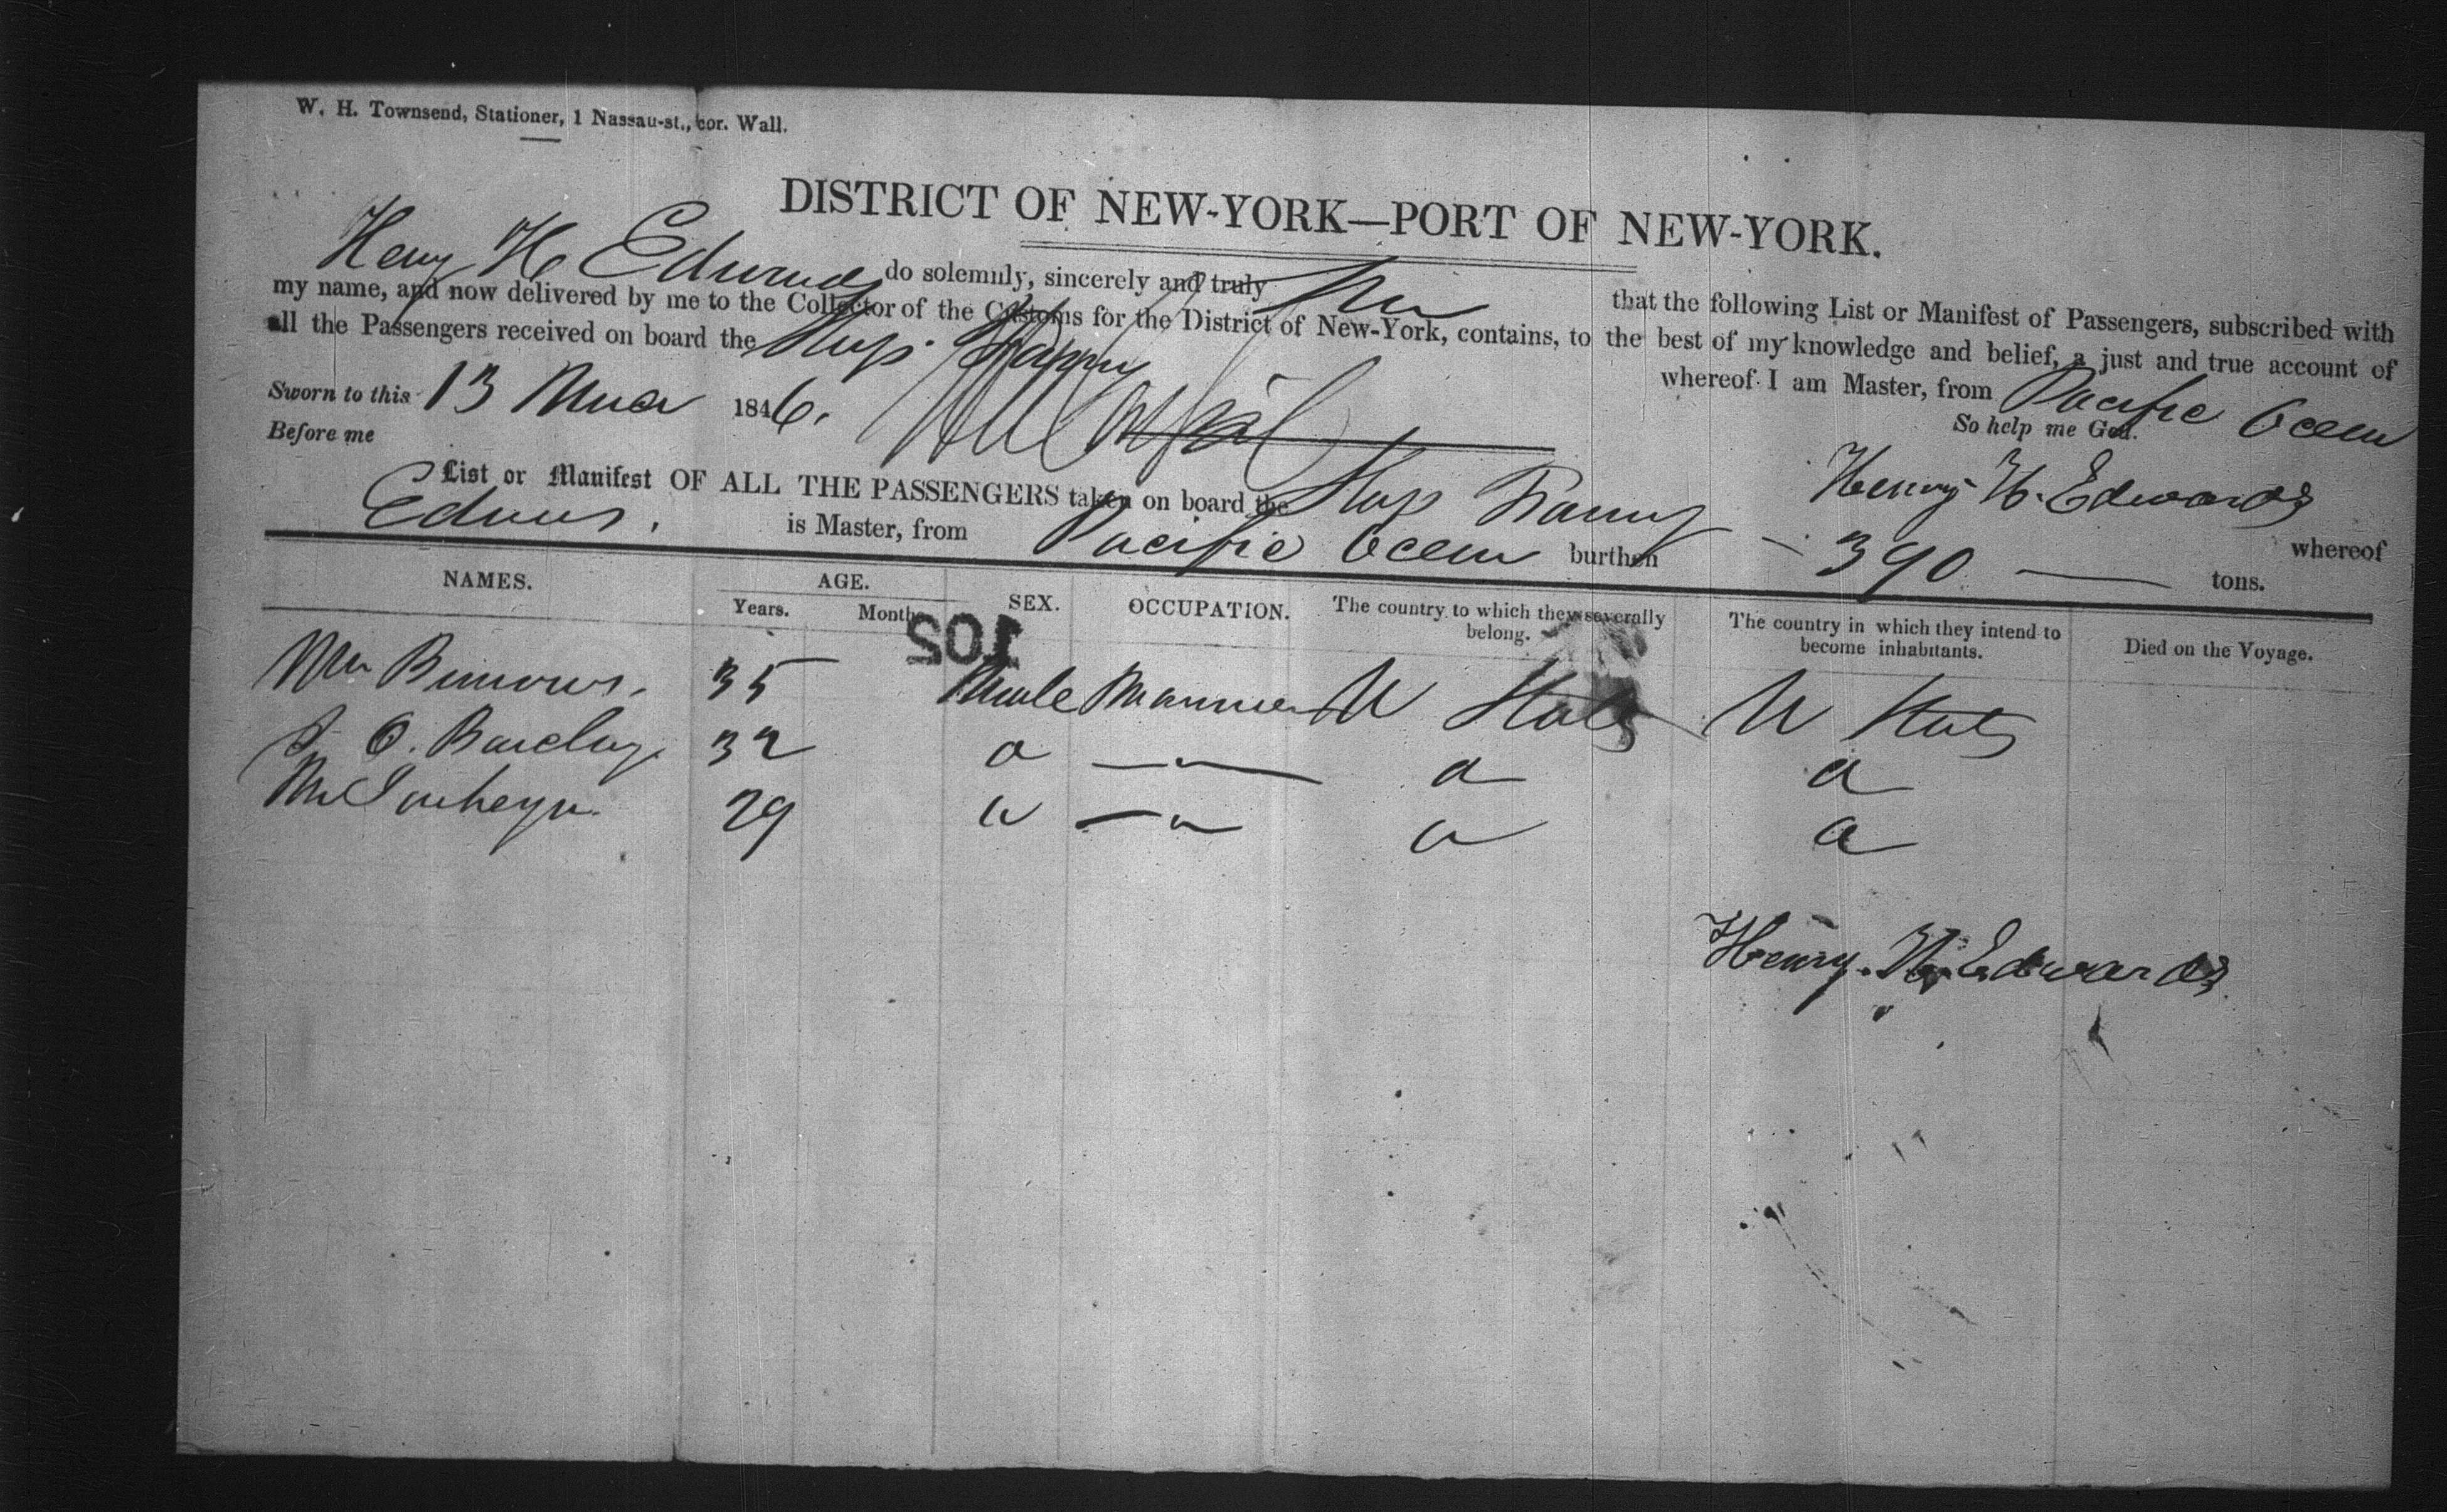 W. H. Townsend, Stationer, 1 Nassau-st., cor. Wall.
DISTRICT OF NEW-YORK—PORT OF NEW-YORK.
Henry H Edwards do solemnly, sincerely and truly that the following List or Manifest of Passengers, subscribed with
my name, and now delivered by me to the Collector of the Customs for the District of New-York, contains, to the best of my knowledge and belief, a just and true account of
all the Passengers received on board the Ship Fanny whereof I am Master, from Pacific Ocean
Sworn to this 13 1846. So help me God.
Before me Henry H. Edwards
List or Manifest OF ALL THE PASSENGERS taken on board the Ship Fanny whereof
Edwards. is Master, from Pacific Ocean burthen 390 tons.
NAMES. AGE. SEX. OCCUPATION. The country to which they severally belong. The country in which they intend to become inhabitants. Died on the Voyage.
Years. Months
102
Mr 35 Male Mariner U States U States
O. Barclay 32 a — " — a a
29 a — " — a a
Henry. H. Edwards